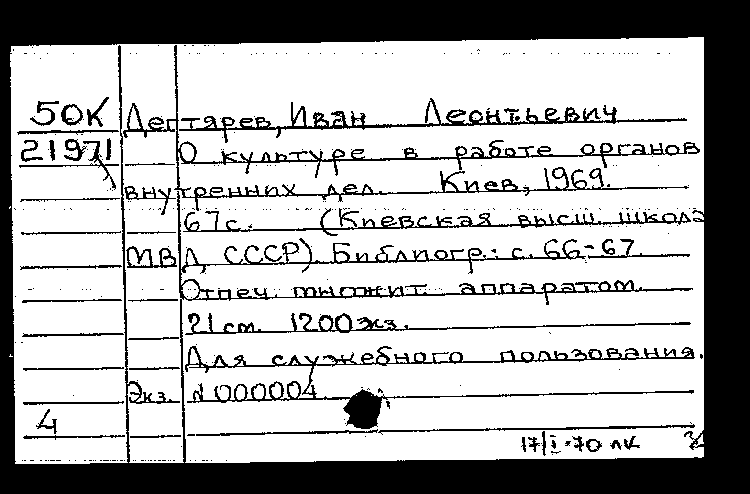 50К Дегтярев, Иван Леонтьевич
21971 О культуре в работе органов
внутренних дел. Киев, 1969.
67с. (Киевская высш. школа
МВД СССР). Библиогр.: с. 66-67.
Отпеч. множит. аппаратом.
21 см. 1200 экз.
Для служебного пользования.
Экз. №000004
4
17/I-70 лк